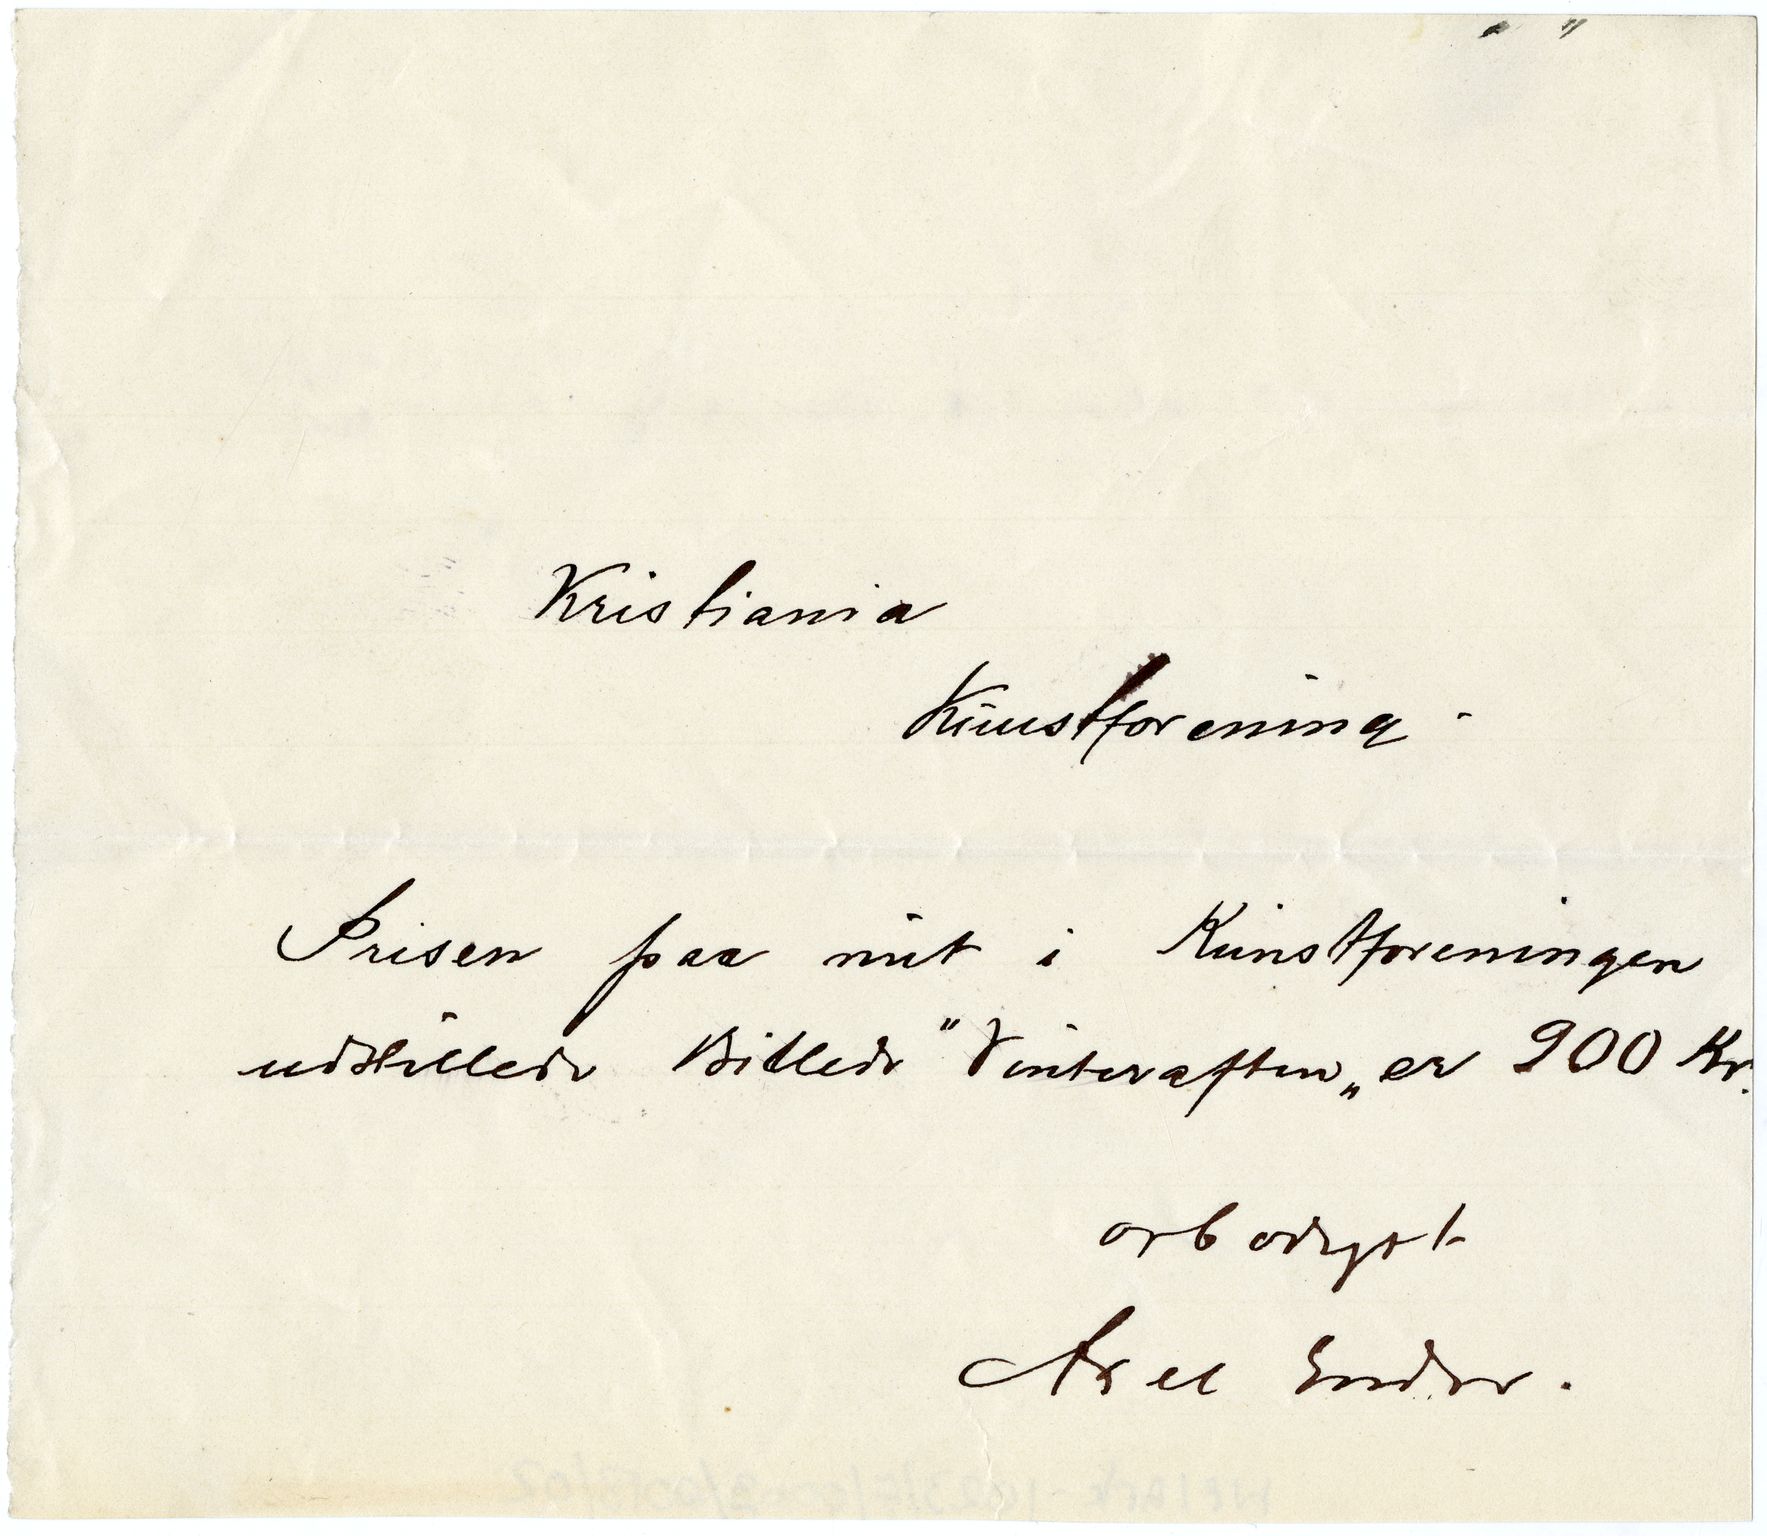 Kristiania
Kunstforening.
Prisen paa mit i Kunstforeningen
udstillede Billede "Vinteraften„ er 900 Kr.
ærbødigst
Axel Ender.